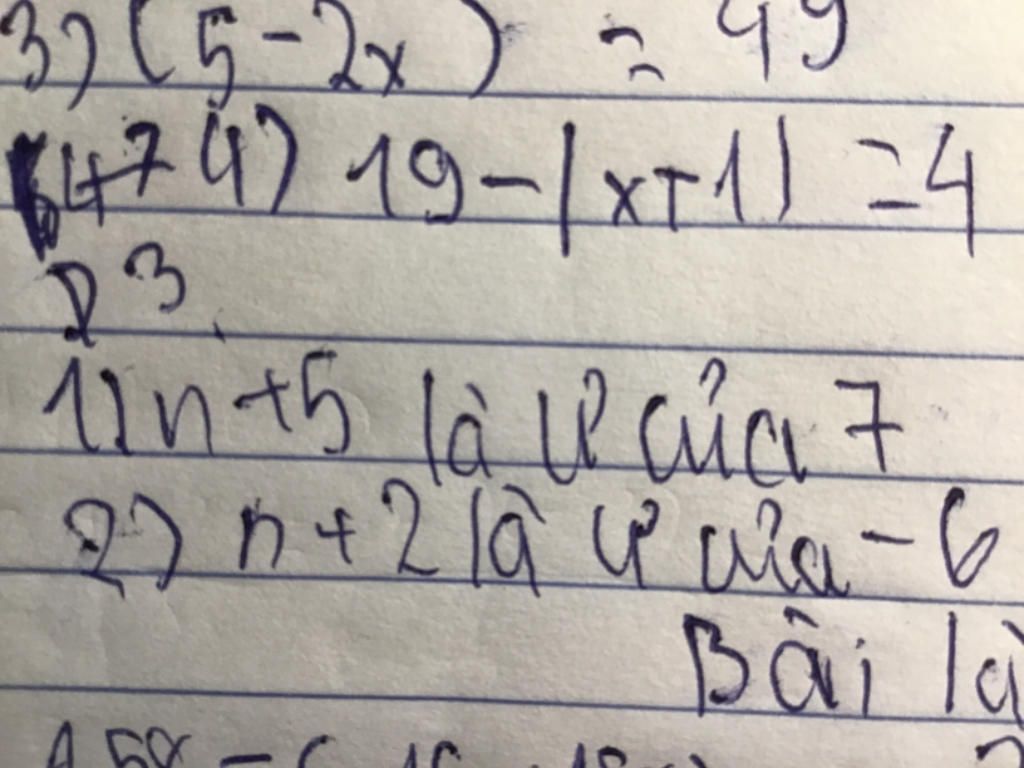 3) (5-2x) = 49
4) 19-|x+1| =4
B3
1) n+5 là ư của 7
2) n+2 là ư của -6
Bài là